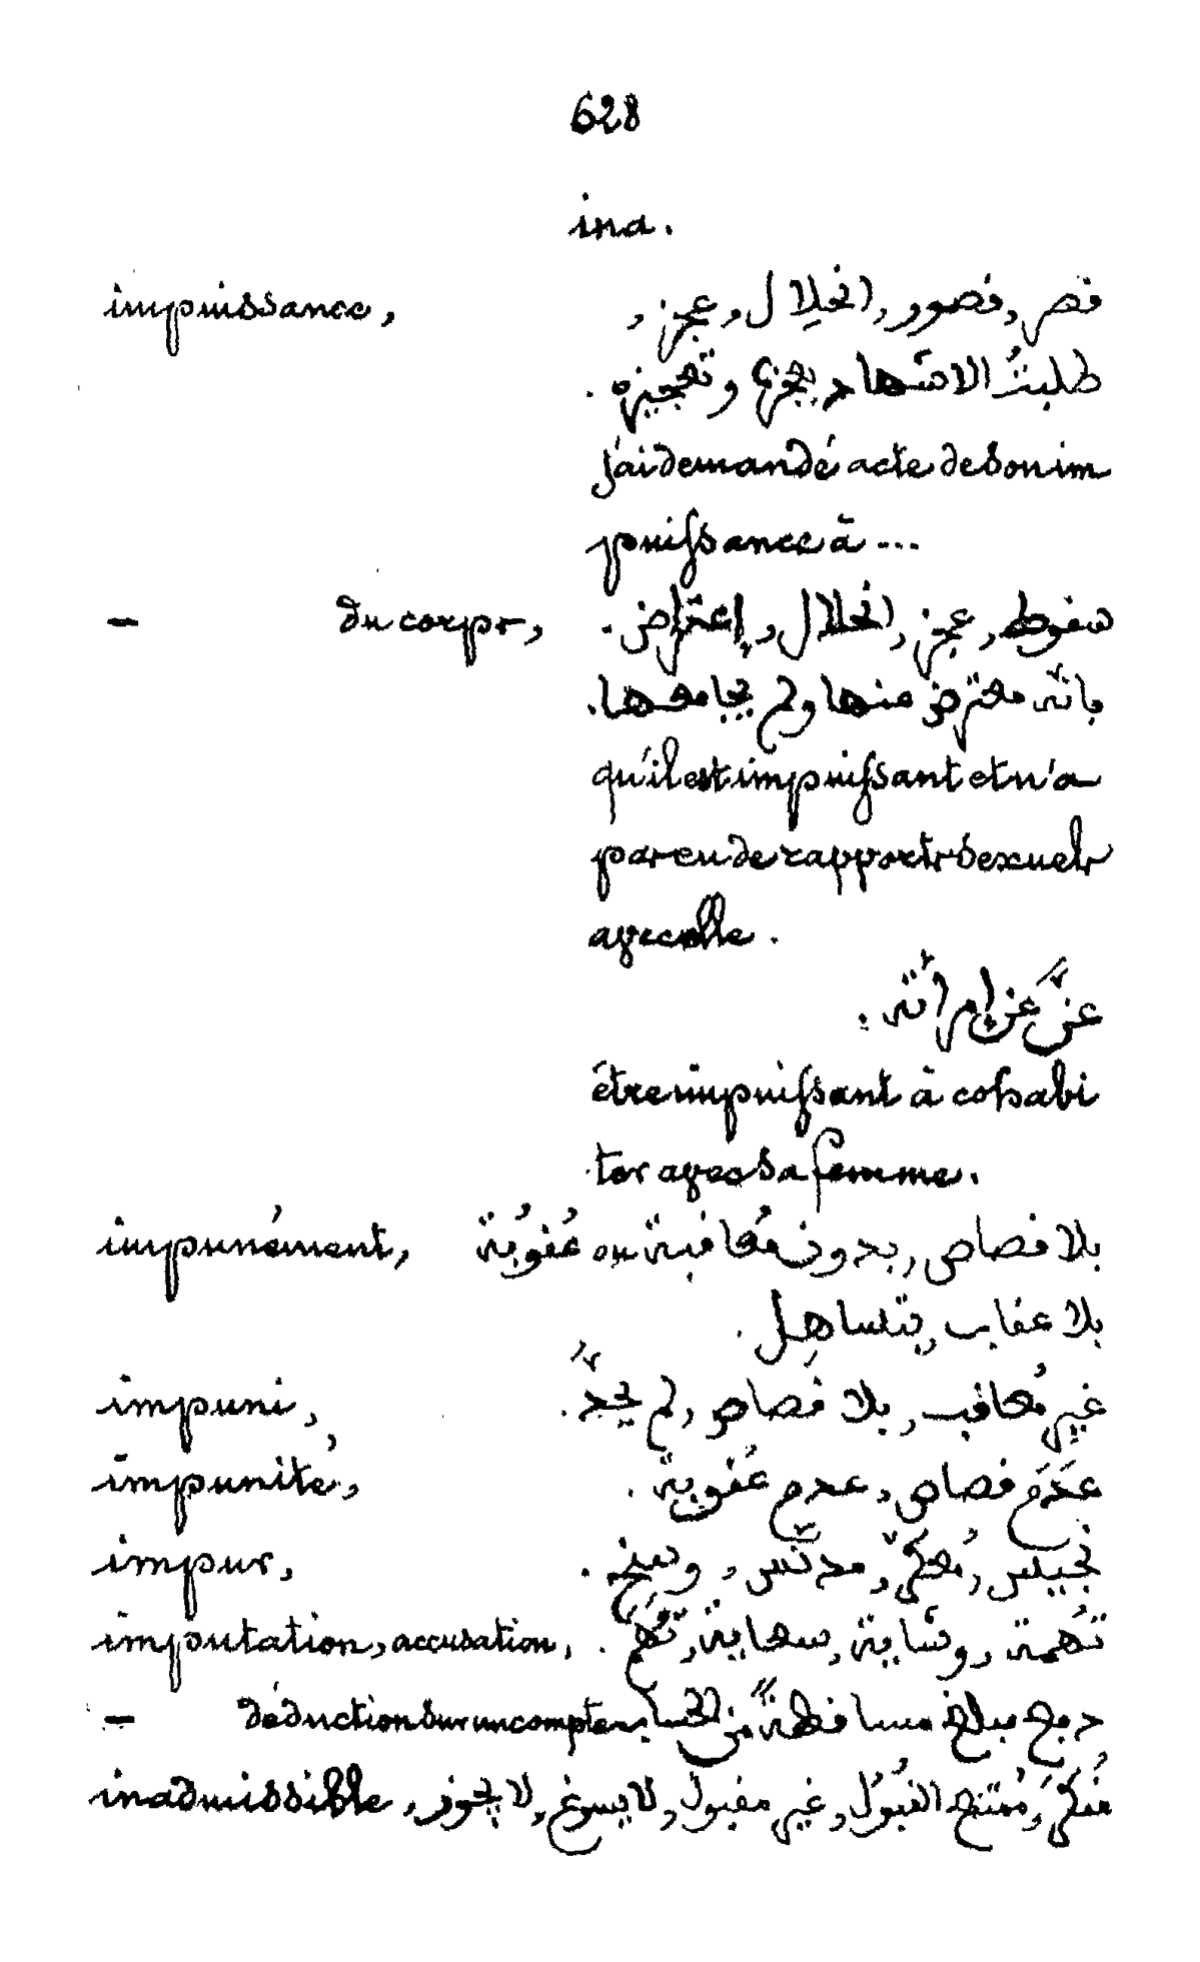 628
ina.
impuissance, قصر, قصور, انحلال, عجز,
طلبتُ الاشهاد بعجزه وتعجيزه.
j'ai demandé acte de son im
puissance à ...
– du corps, سقوط, عجز, انحلال, إعتراض.
بانّه معترض عنها ولم يجامعها.
qu'il est impuissant et n'a
pas eu de rapports sexuels
avec elle.
عنّ عن إمرأته.
être impuissant à cohabi
ter avec sa femme.
impunément, بلا قصاص, بدون مُعاقبة ou عُقوُبة
بلا عقاب, بتساهِل.
impuni, غير مُعاقب, بلا قصاص, لم يحدّ.
impunité, عَدَم قصاص, عدم عُقوبة.
impur, نجيس, مدنّس, وسِخ.
imputation, accusation, تُهمة, وشاية, سعاية, تُهَم.
– déduction sur un compte, مبلغ من الحساب
inadmissible, مُمتنع القبُوُل, غير مقبول, لا يسوغ, لا يجوز,